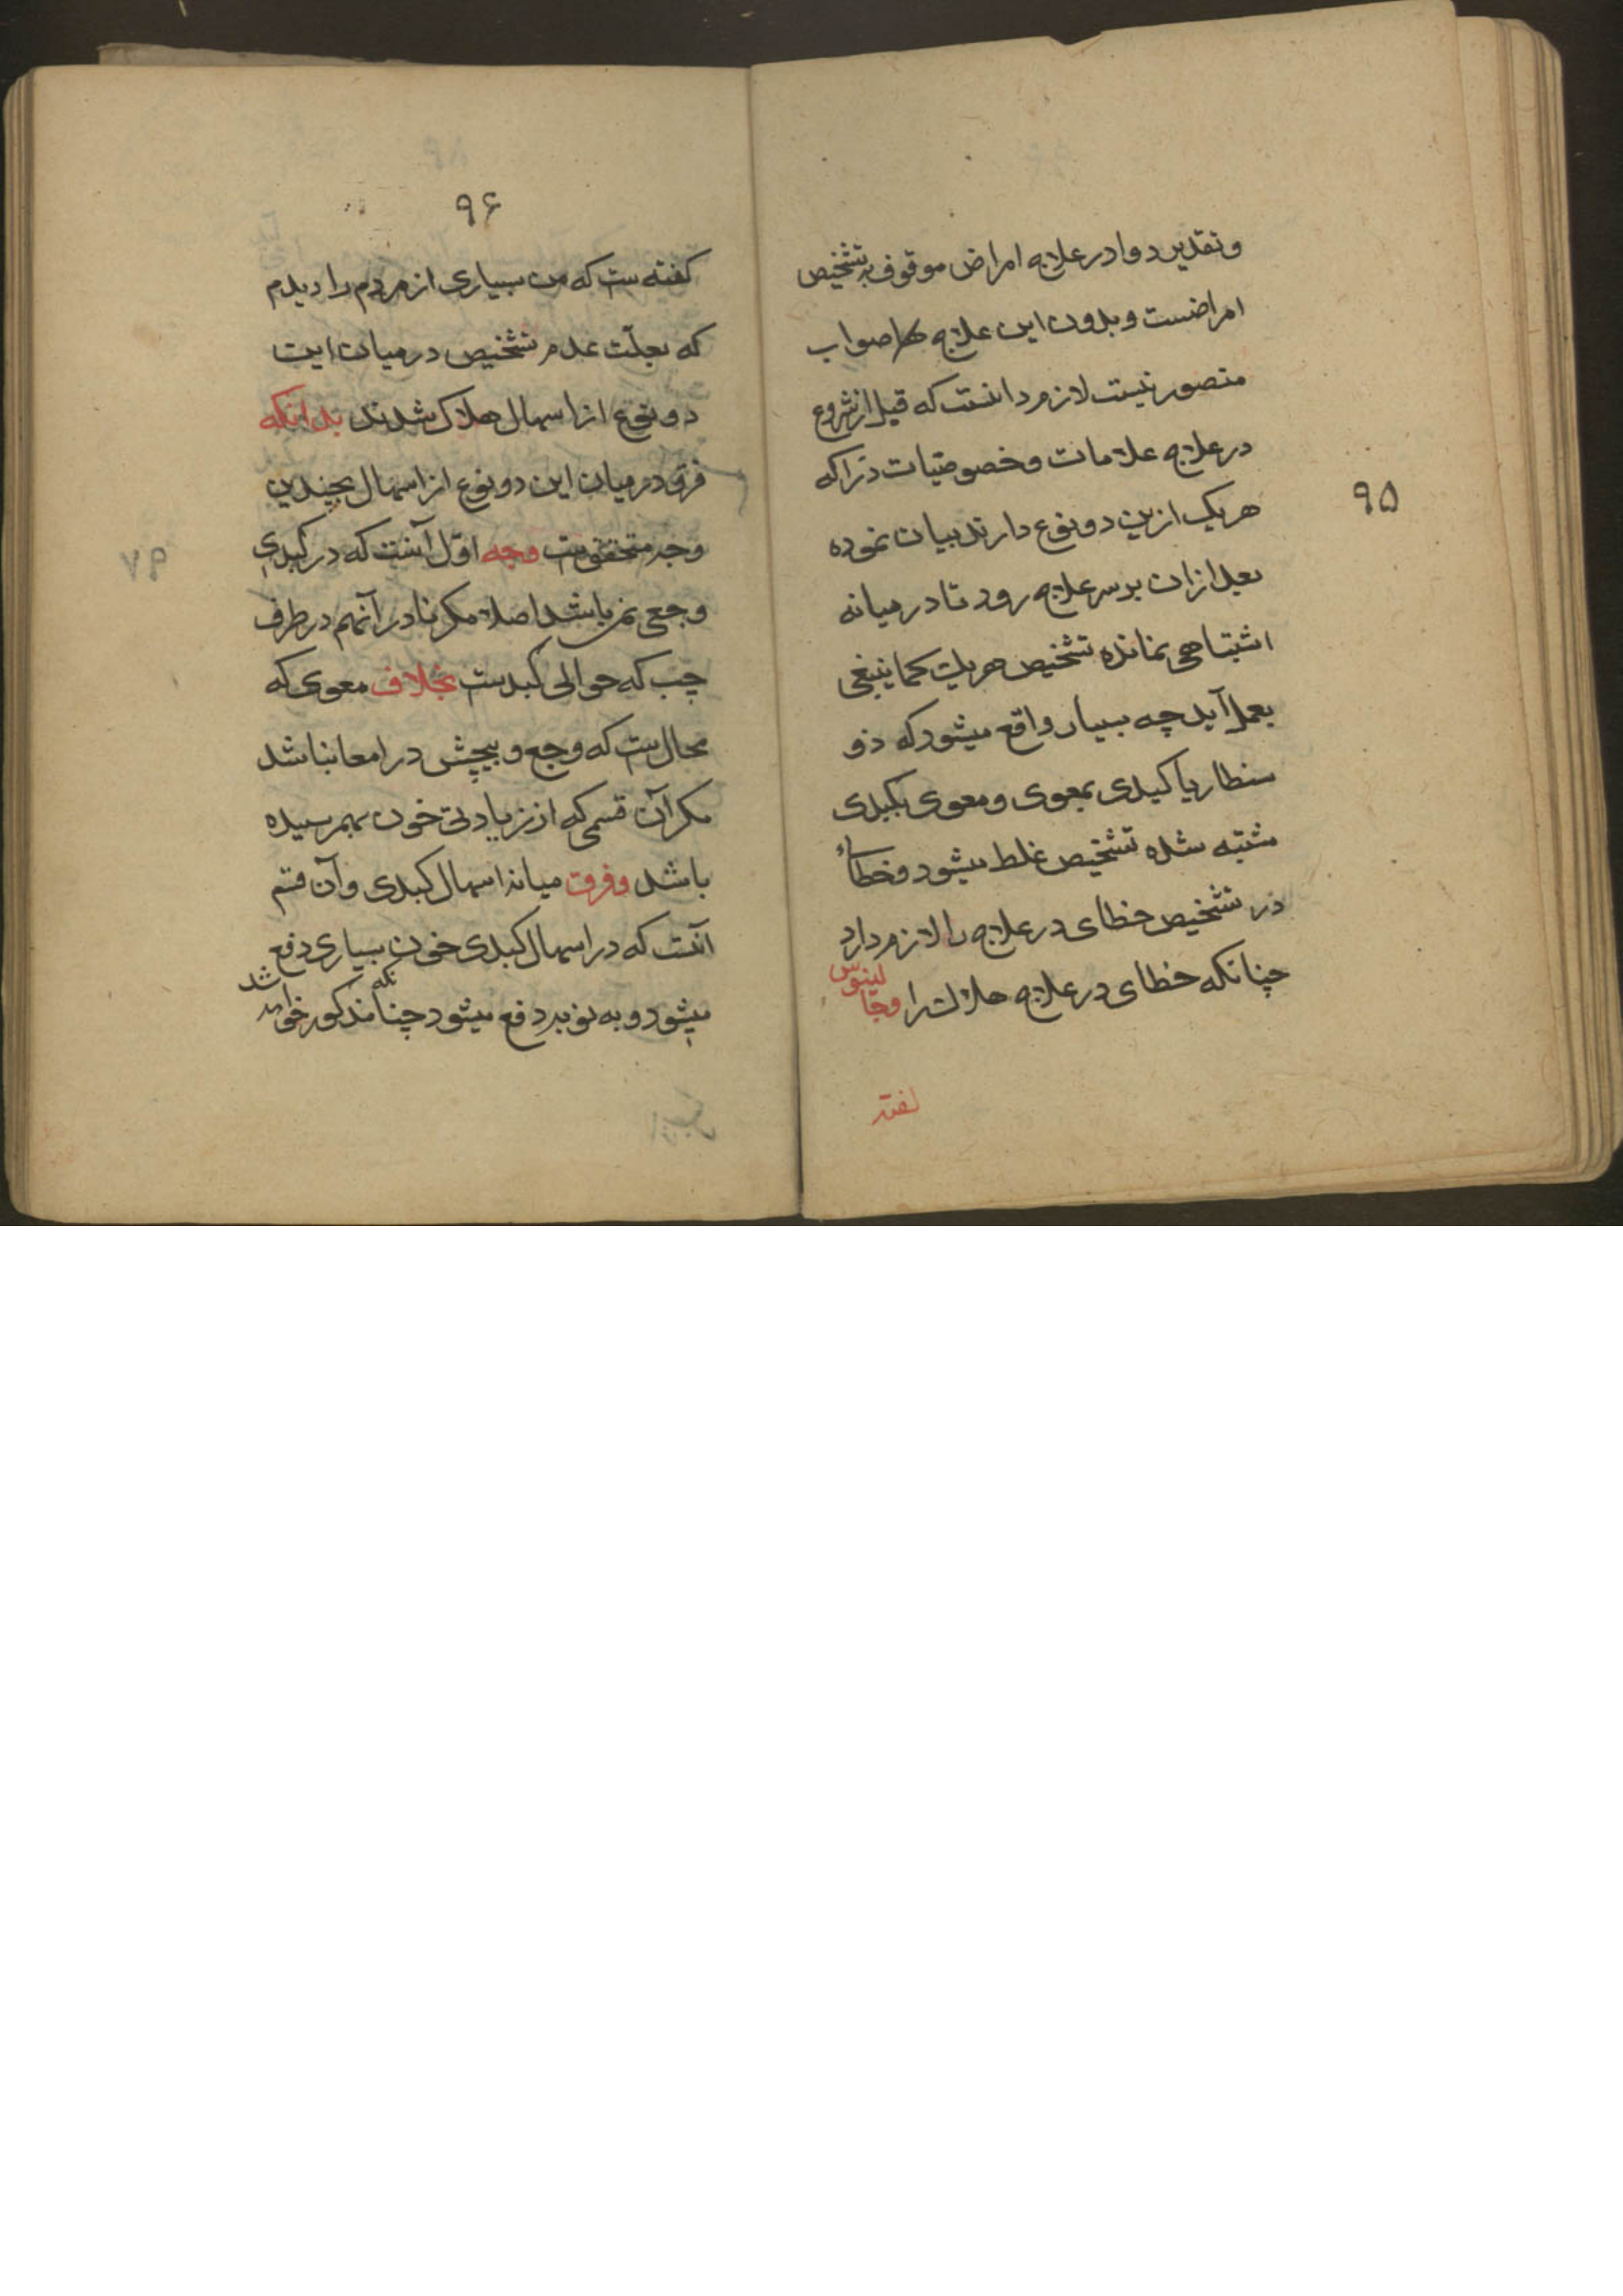 وتقدیر دوا در علاج امراض موقوف به تشخیص
امراضست وبدون این علاج صواب
متصور نیست لازم دانست که قبل از شروع
در علاج علامات وخصوصیّات ذرا که
هریک ازین دو نوع دارند بیان نموده
بعد ازان برسر علاج رود تا در میانه
اشتباهی نمانده تشخیص هریک کما ینبغی
بعمل آید چه بسیار واقع میشود که ذو
سنطاریا کبدی بمعوی ومعوی بکبدی
مشتبه شده تشخیص غلط میشود وخطاء
در تشخیص خطای در علاج را لازم دارد
چنانکه خطای در علاج هلاکت را وجالینوس
گفته
۹۵
۹۶
کفته ست که من بسیاری از مردم را دیدم
که بعلّت عدم تشخیص در میان این
دو نوع از اسهال هلاک شدند بدانکه
فرق در میان این دو نوع از اسهال بچندین
وجه متحققست وجه اوّل آنست که در کبدی
وجعی نمیباشد اصلا مکر نادر آنهم در طرف
چپ که حوالی کبدست بخلاف معوی که
محالست که وجع وپیچش در امعا نباشد
مکر آن قسمی که از زیادتی خون بهمرسیده
باشد وفرق میانه اسهال کبدی وآن قسم
آنست که در اسهال کبدی خون بسیاری دفع
میشود وبه نوبه دفع میشود چنانکه مذکور خواهد شد
۷۹